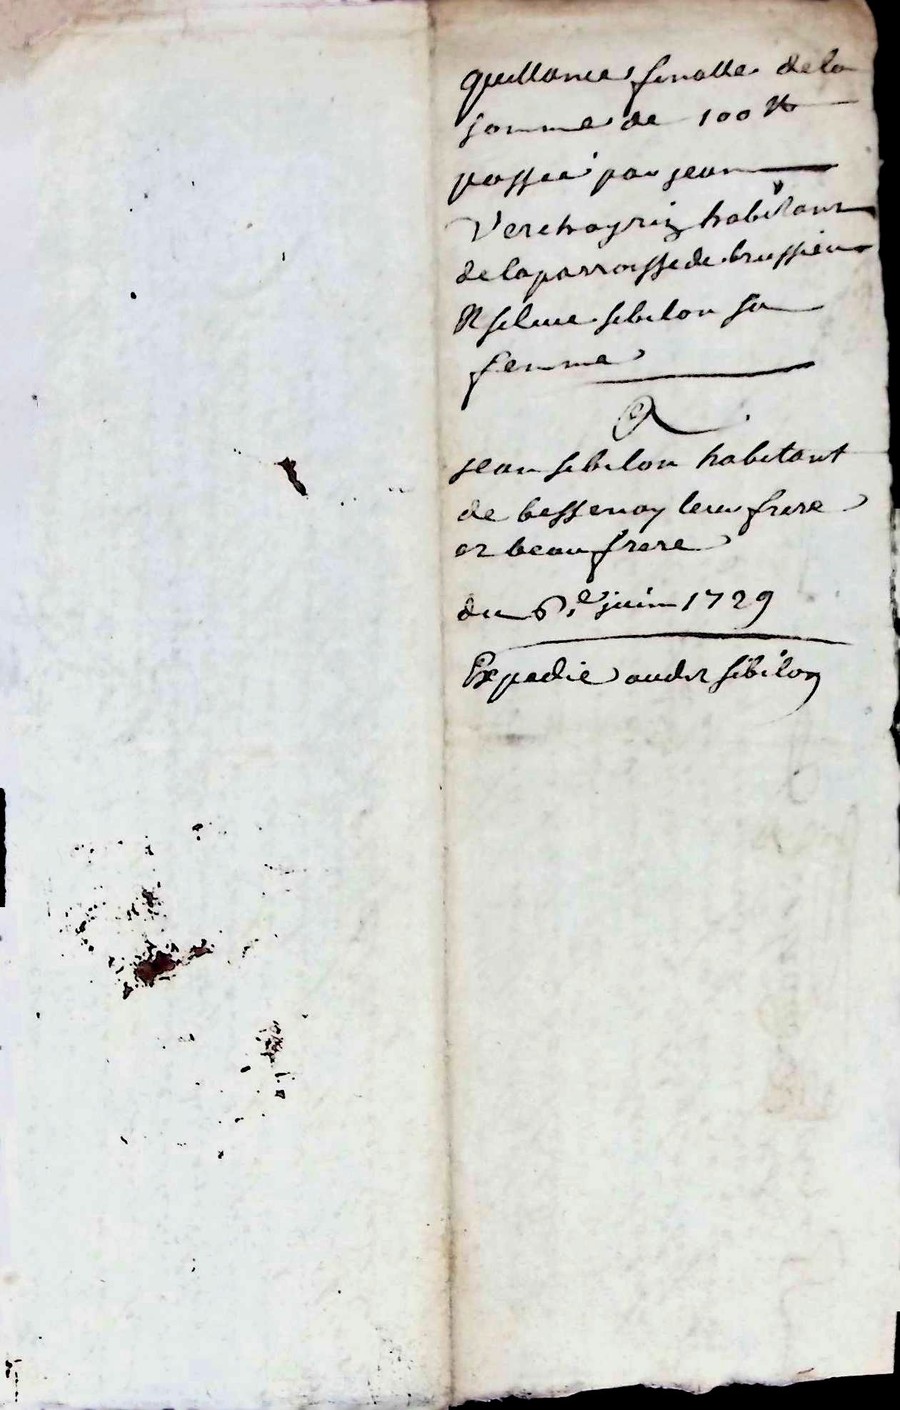 quittance finalle de la
somme de 100 ₶
passée par jean
Verchayriz habitant
de la parroisse de brussieu
Et silvie sibilon sa
femme
A
jean sibilon habitant
de bessenay leur frere
et beaufrere
du 6.e juin 1729
Expedié audit sibilon